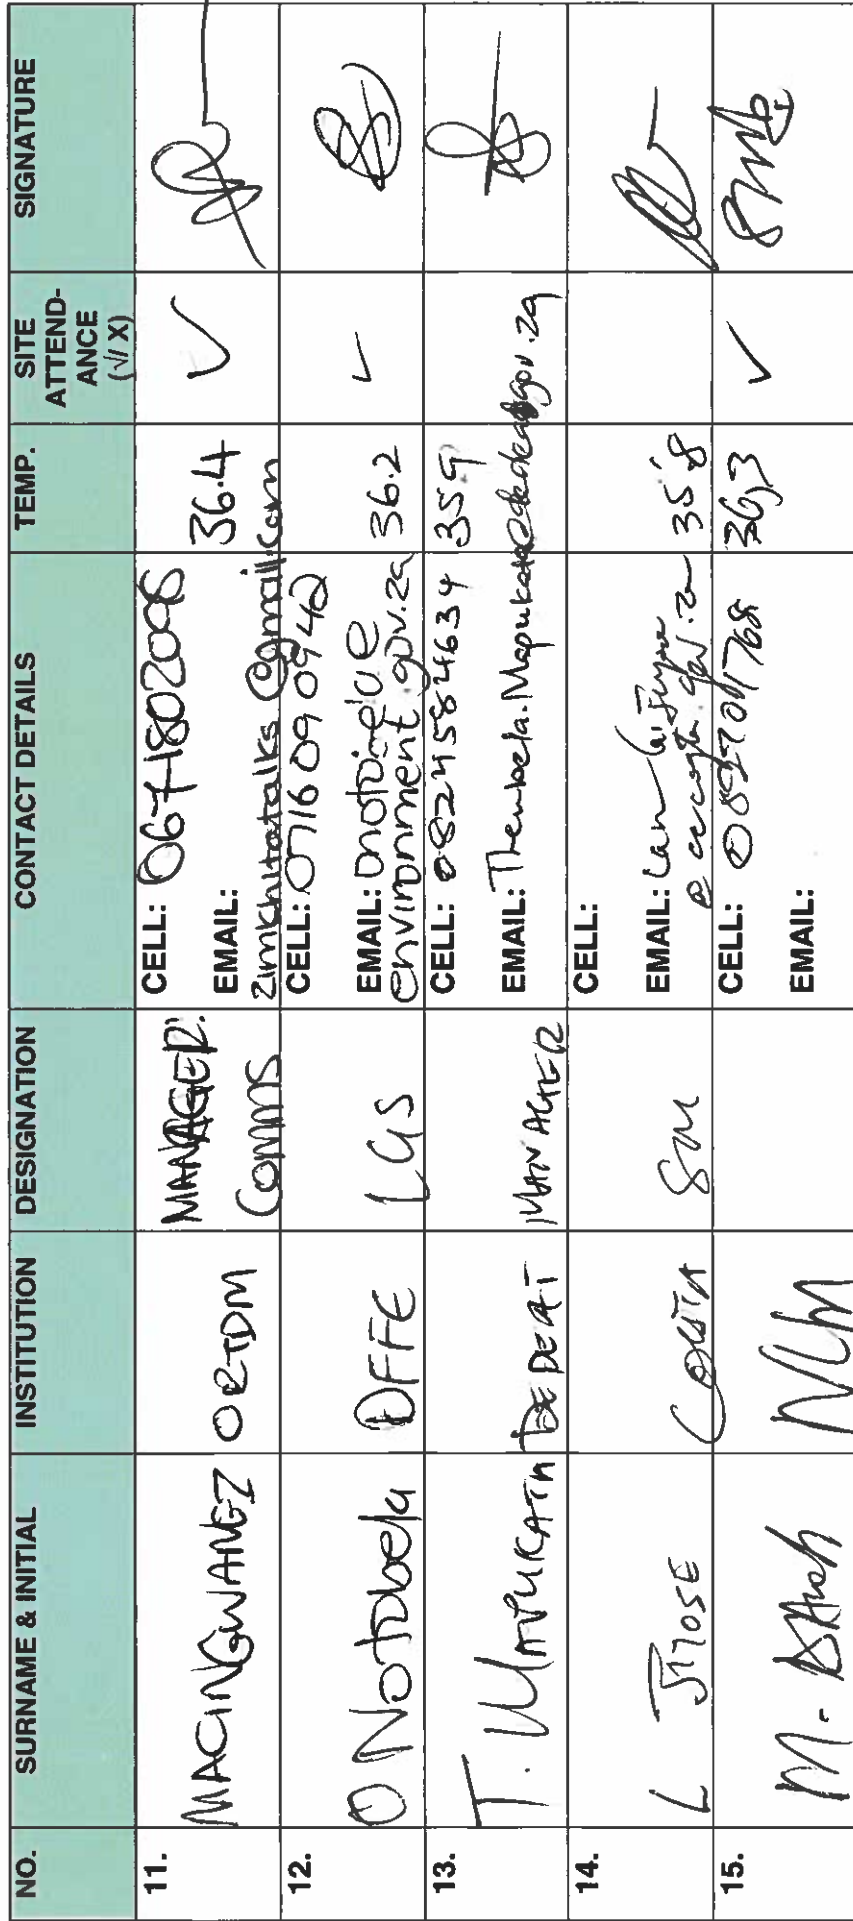 NO. SURNAME & INITIAL INSTITUTION DESIGNATION CONTACT DETAILS TEMP. SITE ATTEND-ANCE (√/ X) SIGNATURE
11. MACINGWANEZ ORTDM MANAGER: COMMS
CELL: 0671802098
36.4 ✓
EMAIL:
zimkhitatalks@gmail.com
12. O Notobela DFFE LGS
CELL: 0716090940
EMAIL: onotobela
environment.gov.za 36.2 ✓
13. T. MAPUKATA DEDEAT MANAGER
CELL: 0824584634 359
EMAIL: Thembela.Mapukata@dedea.gov.za
14. L JIJOSE COGTA SM
CELL:
EMAIL:
35.8
15. M. NLM
CELL: 36,3 ✓
EMAIL: